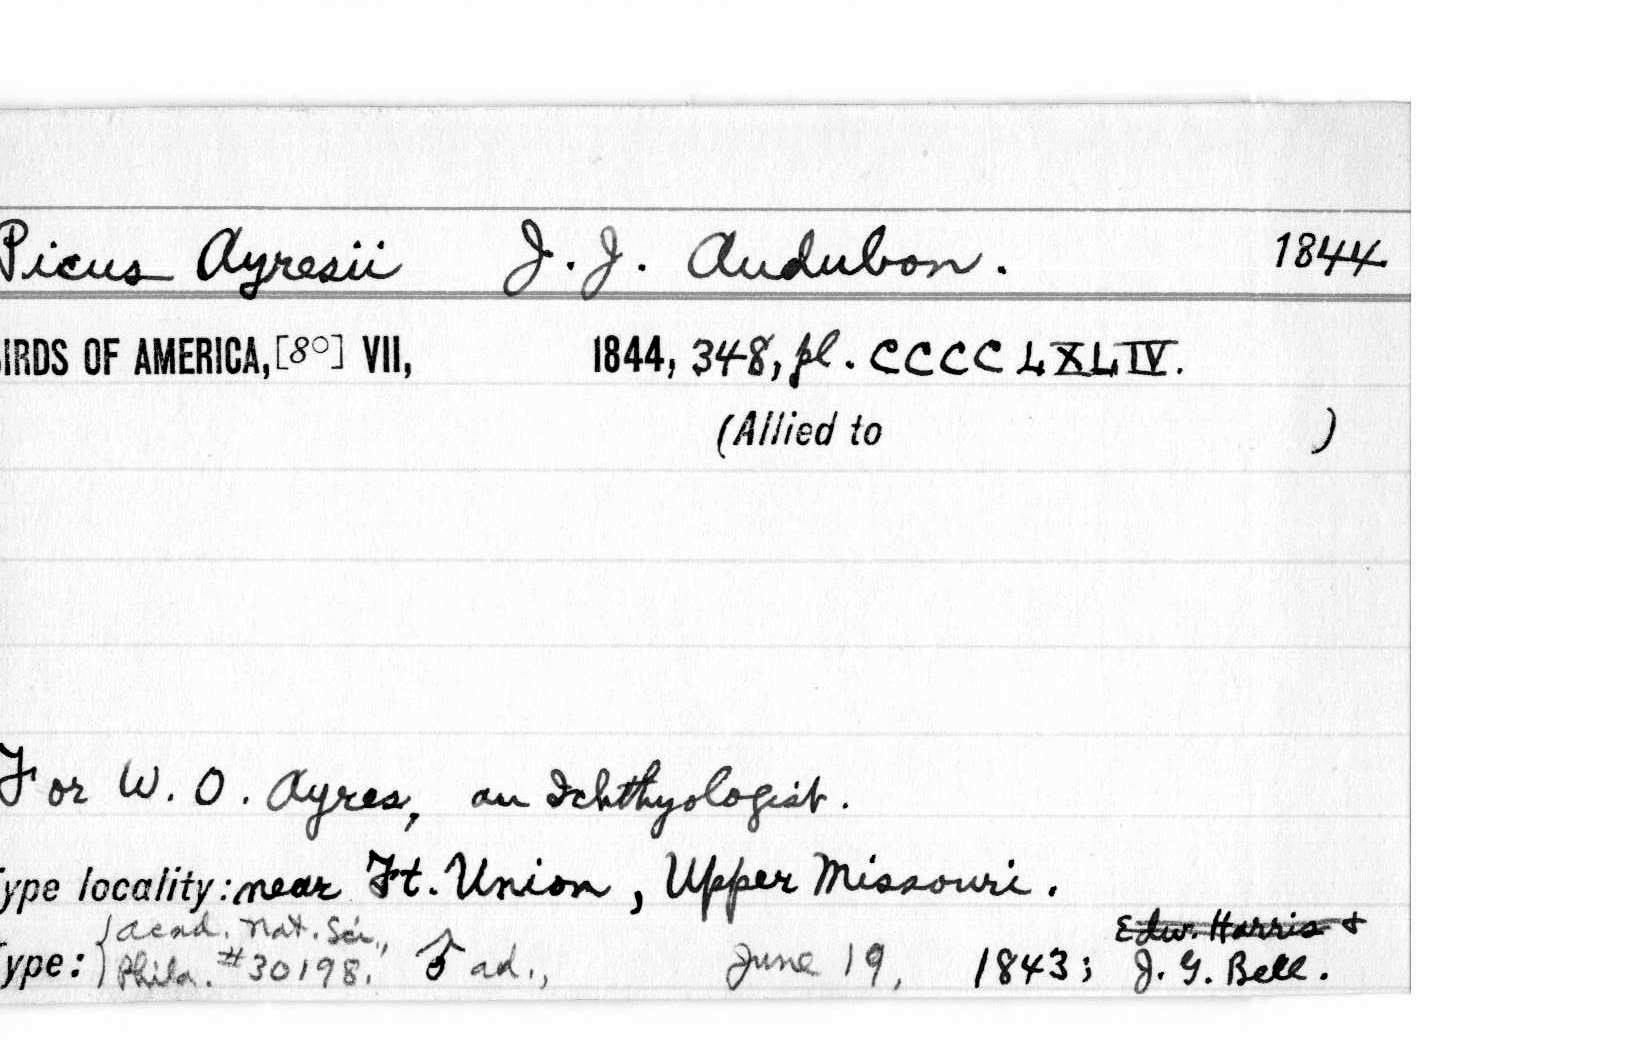 Picus Ayresii J. J. Audubon. 1844.
BIRDS OF AMERICA, [8°] VII, 1844, 348, pl. CCCCLXLIV.
(Allied to )
For W. O. Ayres, an Ichthyologist.
Type locality: near Ft. Union, Upper Missouri.
Acad. Nat. Sci., Edw. Harris &
Type: Phila. #30198. ♂ ad., June 19, 1843; J. G. Bell.